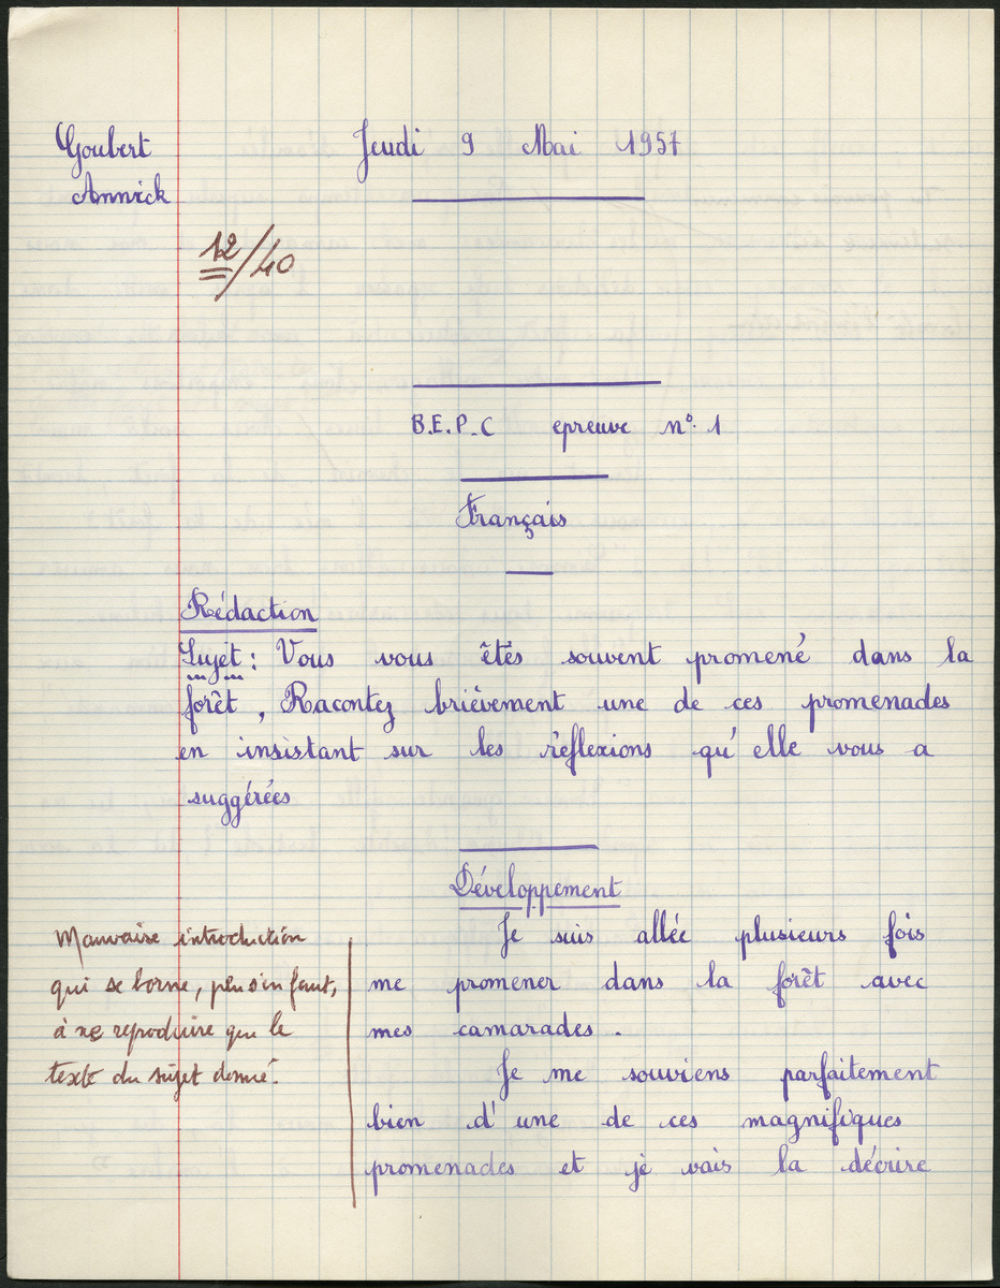 Goubert
Annick
Jeudi 9 Mai 1957
12/40
B.E.P.C epreuve n° 1
Français
Rédaction
Sujet : Vous vous êtés souvent promené dans la
forêt, Racontez brièvement une de ces promenades
en insistant sur les réflexions qu'elle vous a
suggérées
Développement
Je suis allée plusieurs fois
me promener dans la forêt avec
mes camarades.
Je me souviens parfaitement
bien d'une de ces magnifiques
promenades et je vais la décrire
Mauvaise introduction
qui se borne, peu s'en faut,
à ne reproduire que le
texte du sujet donné.